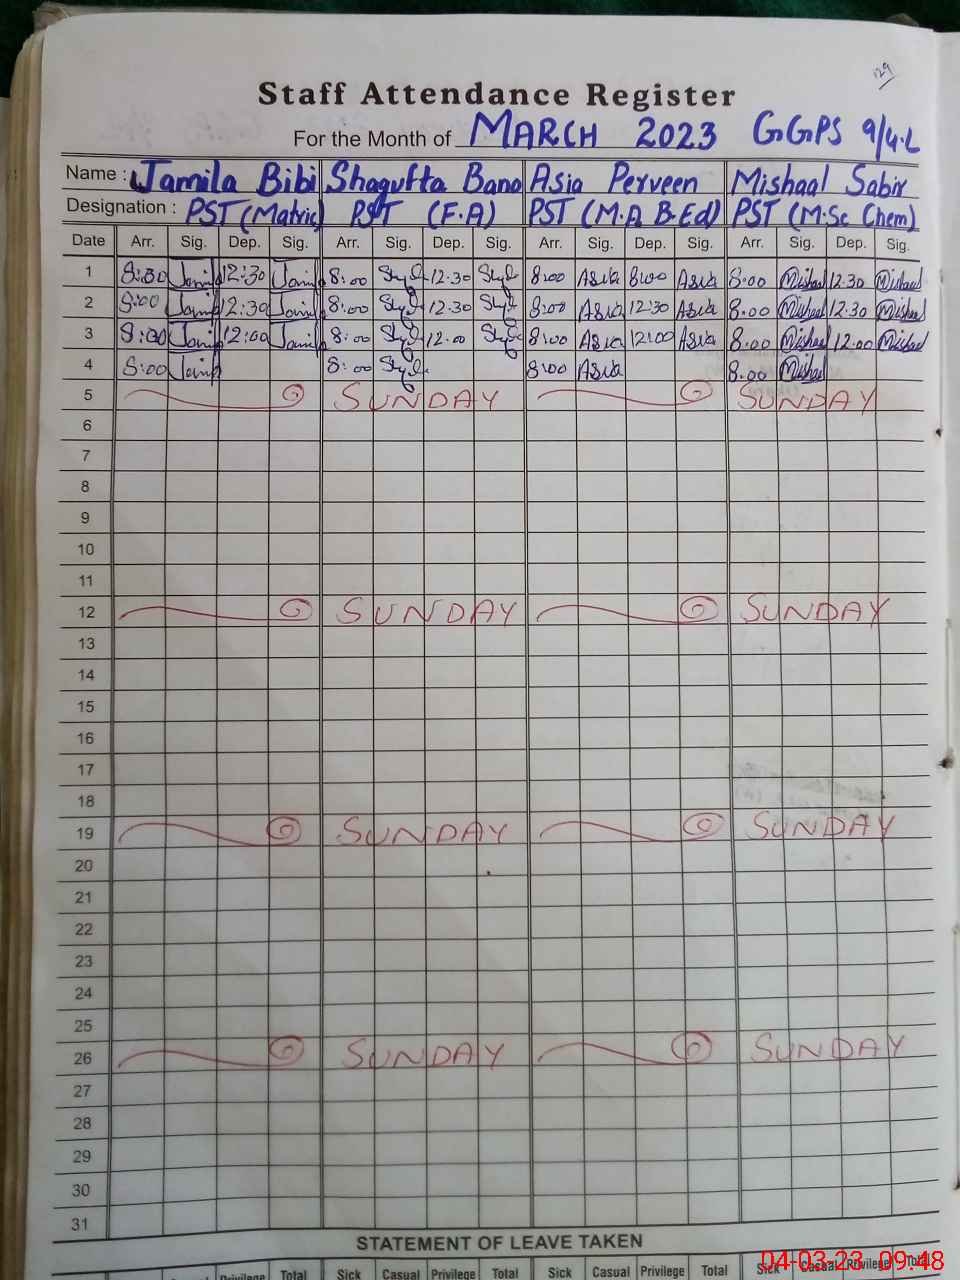 129
Staff Attendance Register
For the Month of MARCH 2023 GGPS 9/4.L
Name : Jamila Bibi Shagufta Bano Asia Perveen Mishaal Sabir
Designation : PST (Matric) PST (F.A) PST (M.A B.Ed) PST (M.Sc Chem)
Date Arr. Sig. Dep. Sig. Arr. Sig. Dep. Sig. Arr. Sig. Dep. Sig. Arr. Sig. Dep. Sig.
1 8:30 Jamila 12:30 Jamila 8:00 12:30 8:00 Asia 8:00 Asia 8.00 Mishaal 12.30 Mishaal
2 8:00 Jamila 12:30 Jamila 8:00 12.30 8:00 Asia 12:30 Asia 8.00 Mishaal 12.30 Mishaal
3 8:00 Jamila 12:00 Jamila 8:00 12:00 8:00 Asia 12:00 Asia 8.00 Mishaal 12.00 Mishaal
4 8:00 Jamila 8:00 8:00 Asia 8.00 Mishaal
5 SUNDAY SUNDAY
6
7
8
9
10
11
12 SUNDAY SUNDAY
13
14
15
16
17
18
19 SUNDAY SUNDAY
20
21
22
23
24
25
26 SUNDAY SUNDAY
27
28
29
30
31
STATEMENT OF LEAVE TAKEN
Privilege Total Sick Casual Privilege Total Sick Casual Privilege Total Sick Casual Privilege Total
04-03-23 09:48